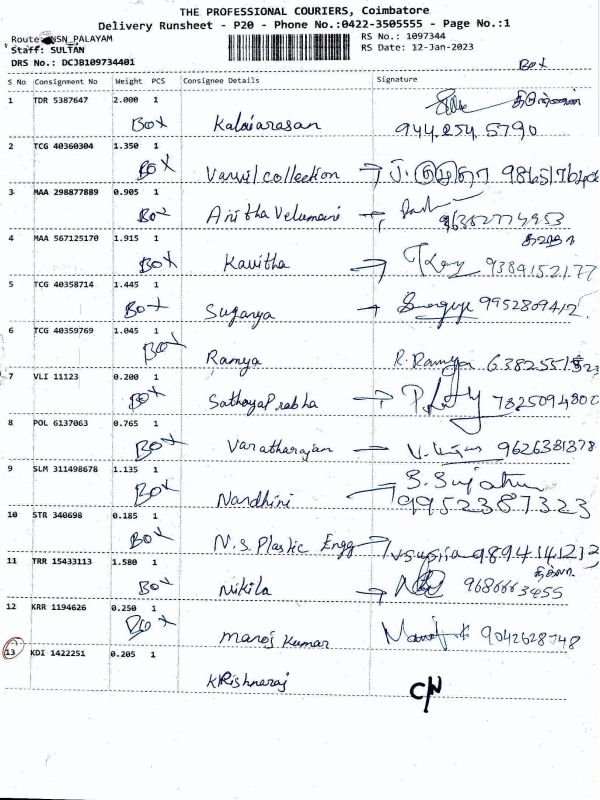 THE PROFESSIONAL COURIERS, Coimbatore
Delivery Runsheet - P20 - Phone No.:0422-3505555 - Page No.:1
Route: NSN_PALAYAM RS No.: 1097344
Staff: SULTAN RS Date: 12-Jan-2023
DRS No.: DCJB109734401
Box
S No Consignment No Weight PCS Consignee Details Signature
1 TDR 5387647 2.000 1
Box Kalaiarasan 944 254 5790
2 TCG 40360304 1.350 1
Box Vanvil collection
3 MAA 298877889 0.905 1
Box Anitha Velumani
4 MAA 567125170 1.915 1 கவிதா
Box Kavitha 9384152177
5 TCG 40358714 1.445 1
Box Suganya 9952809412
6 TCG 40359769 1.045 1
Box Ramya R. Ramya
7 VLI 11123 0.200 1
Box SathoyaPrabha
8 POL 6137063 0.765 1
Box Varatharajan 9626381878
9 SLM 311498678 1.135 1 S. Sujatha
Box Nandhini 9952387323
10 STR 340698 0.185 1
Box N.S. Plastic Engg 9894141212
11 TRR 15433113 1.580 1
Box Nikila 9686663455
12 KRR 1194626 0.250 1
Box Manoj Kumar 9042628748
13 KDI 1422251 0.205 1
KRishnaraj C/N